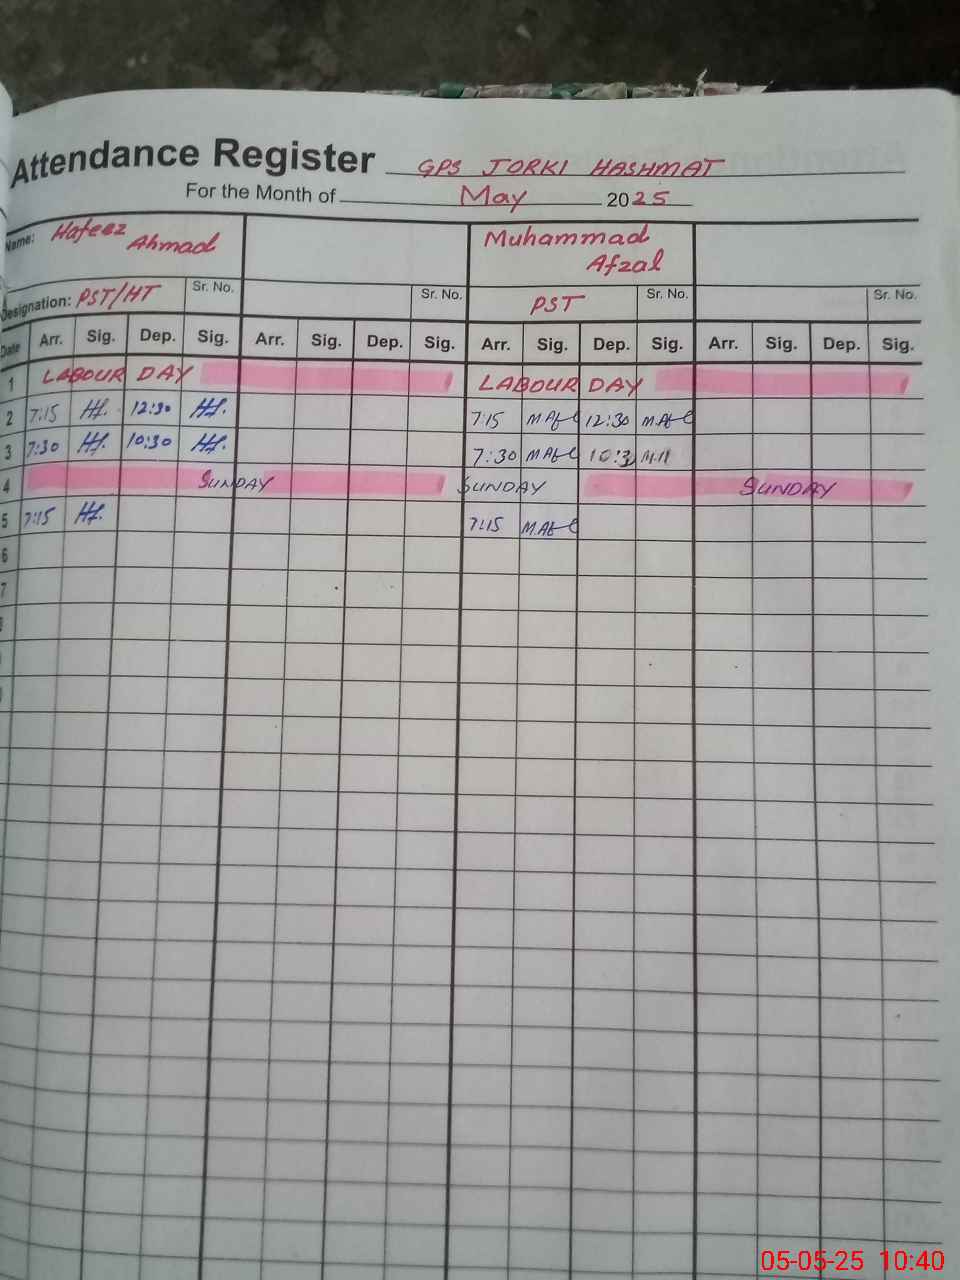 Attendance Register GPS JORKI HASHMAT
For the Month of May 2025
Name: Hafeez Ahmad Muhammad Afzal
Designation: PST/HT Sr. No. Sr. No. PST Sr. No. Sr. No.
Date Arr. Sig. Dep. Sig. Arr. Sig. Dep. Sig. Arr. Sig. Dep. Sig. Arr. Sig. Dep. Sig.
1 LABOUR DAY LABOUR DAY
2 7:15 12:30 7:15 12:30
3 7:30 10:30 7:30 10:3
4 SUNDAY SUNDAY SUNDAY
5 7:15 7:15
6
7
05-05-25 10:40